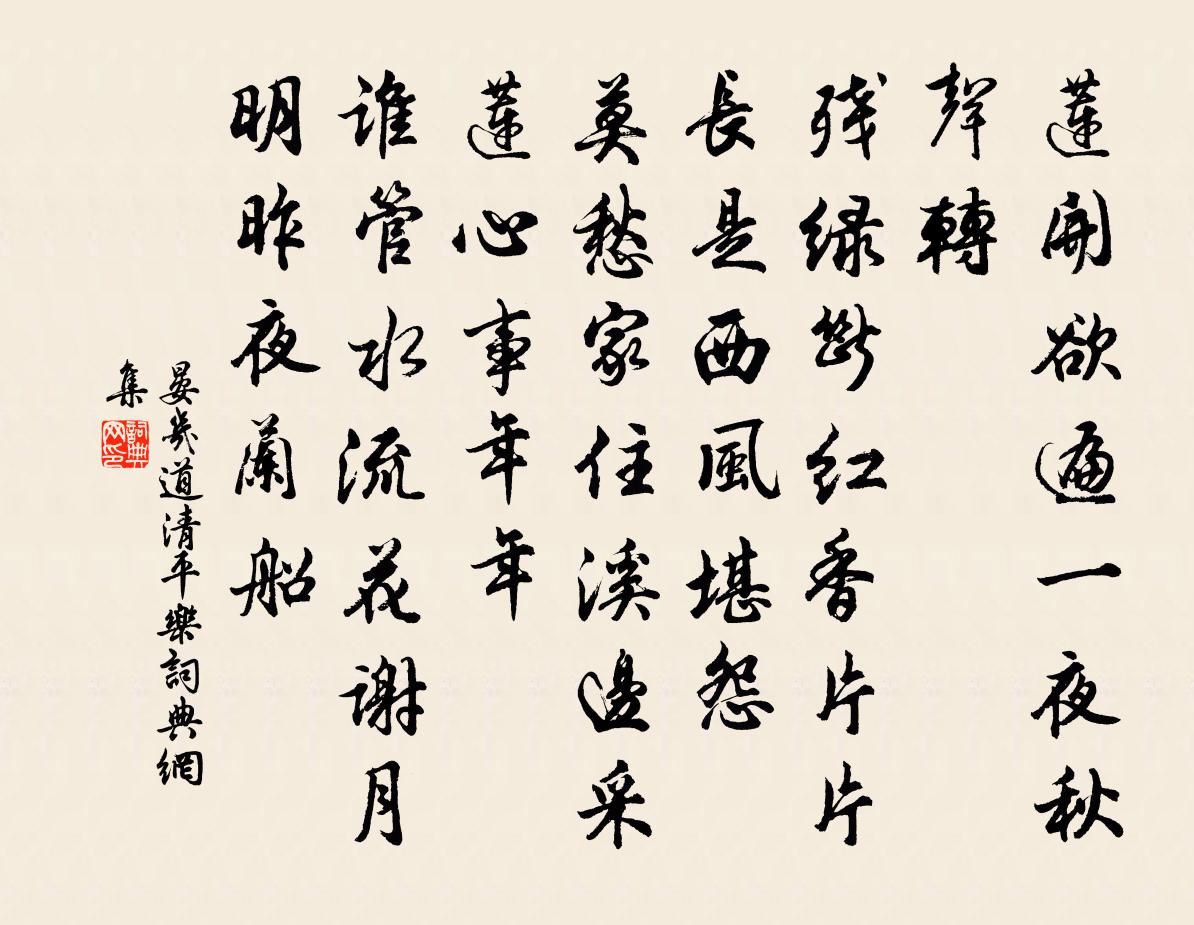 蓮開欲遍一夜秋
聲轉
殘緑斷紅香片片
長是西風堪怨
莫愁家住溪邊采
蓮心事年年
誰管水流花謝月
明昨夜蘭船
晏幾道清平樂詞典網
集
詞典
网印